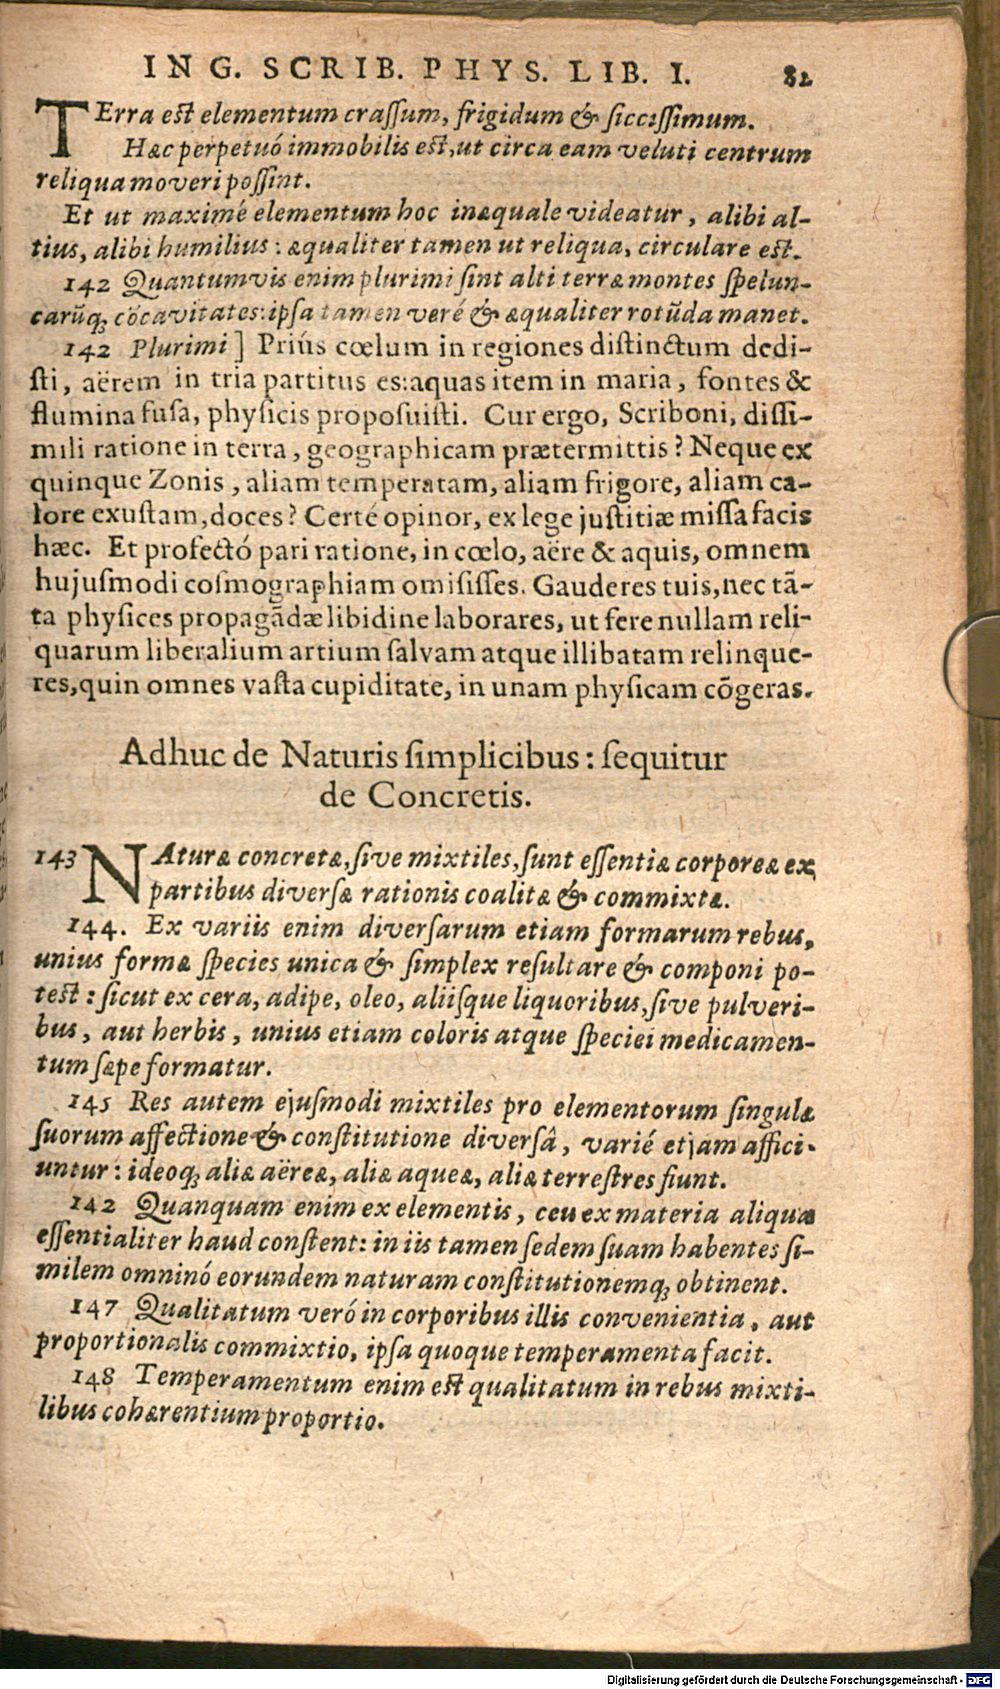 IN G. SCRIB. PHYS. LIB. I. 82
TErra est elementum crassum, frigidum & siccissimum.
Hæc perpetuó immobilis est, ut circa eam veluti centrum
reliqua moveri possint.
Et ut maximé elementum hoc inæquale videatur, alibi al-
tius, alibi humilius: æqualiter tamen ut reliqua, circulare est.
142 Quantumvis enim plurimi sint alti terræ montes spelun-
carūq; cōcavitates: ipsa tamen veré & æqualiter rotūda manet.
142 Plurimi] Priús cœlum in regiones distinctum dedi-
sti, aërem in tria partitus es: aquas item in maria, fontes &
flumina fusa, physicis proposuisti. Cur ergo, Scriboni, dissi-
mili ratione in terra, geographicam prætermittis? Neque ex
quinque Zonis, aliam temperatam, aliam frigore, aliam ca-
lore exustam, doces? Certé opinor, ex lege justitiæ missa facis
hæc. Et profectó pari ratione, in cœlo, aëre & aquis, omnem
hujusmodi cosmographiam omisisses. Gauderes tuis, nec tā-
ta physices propagādæ libidine laborares, ut fere nullam reli-
quarum liberalium artium salvam atque illibatam relinque-
res, quin omnes vasta cupiditate, in unam physicam cōgeras.
Adhuc de Naturis simplicibus: sequitur
de Concretis.
143 NAturæ concretæ, sive mixtiles, sunt essentiæ corporeæ ex
partibus diversæ rationis coalitæ & commixtæ.
144. Ex variis enim diversarum etiam formarum rebus,
unius formæ species unica & simplex resultare & componi po-
test: sicut ex cera, adipe, oleo, aliisque liquoribus, sive pulveri-
bus, aut herbis, unius etiam coloris atque speciei medicamen-
tum sæpe formatur.
145 Res autem ejusmodi mixtiles pro elementorum singulæ
suorum affectione & constitutione diversâ, varié etjam affici-
untur: ideoq; aliæ aëreæ, aliæ aqueæ, aliæ terrestres fiunt.
142 Quanquam enim ex elementis, ceu ex materia aliqua
essentialiter haud constent: in iis tamen sedem suam habentes si-
milem omninó eorundem naturam constitutionemq; obtinent.
147 Qualitatum veró in corporibus illis convenientia, aut
proportionalis commixtio, ipsa quoque temperamenta facit.
148 Temperamentum enim est qualitatum in rebus mixti-
libus cohærentium proportio.
Digitalisierung gefördert durch die Deutsche Forschungsgemeinschaft - DFG